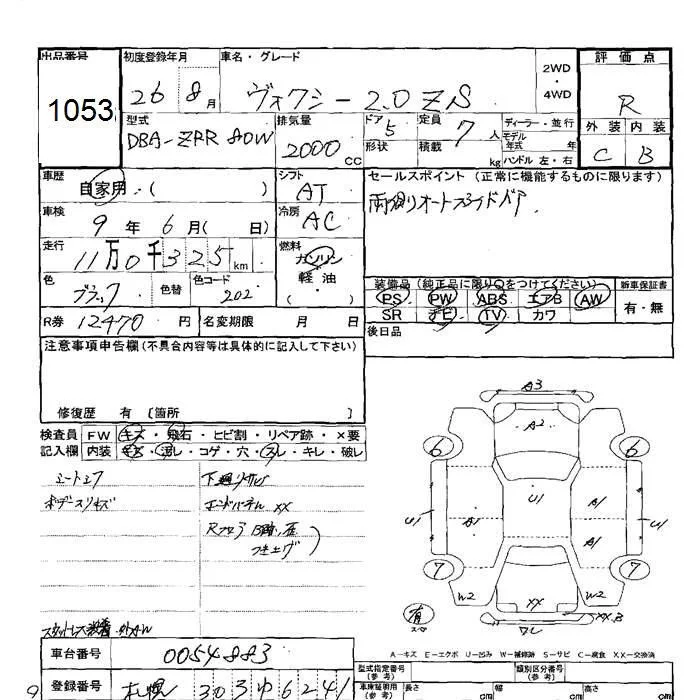 出品番号 初度登録年月 車名・グレード 2WD 4WD 評価点
1053 26 8月 ヴォクシー 2.0 ZS R
型式 排気量 ドア 定員 ディーラー・並行 外装 内装
DBA-ZRR80W 2000CC 5 7人 モデル年式 年 C B
形状 積載 kg ハンドル 左・右
車歴 シフト セールスポイント (正常に機能するものに限ります)
自家用・( ) AT 両側オートスライドドア.
車検 冷房
9年 6月( 日) AC
走行 燃料
11万0千325km ガソリン
軽油
・( )
色 色替 色コード 装備品 (純正品に限り○をつけてください) 新車保証書
ブラック 202 PS PW ABS エアB AW 有・無
SR ナビ TV カワ
R券 12470円 名変期限 月 日 後日品
注意事項申告欄(不具合内容等は具体的に記入して下さい)
修復歴 有 〔箇所 〕
検査員 FW キズ・飛石・ヒビ割・リペア跡・×要
記入欄 内装 キズ・汚レ・コゲ・穴・スレ・キレ・破レ
下廻りサビ
ボデースリキズ エンドパネル XX
Rフロア
A3
A2
6 6
U1 A1 U1 A1 U1
A1
7 7
W2 XX W2
XX.B
有 スペア
A-キズ E-エクボ U-凹み W-補修跡 S-サビ C-腐食 XX-交換済
スタッドレス装着
車台番号 0054883
型式指定番号(参考) 類別区分番号(参考)
登録番号 札幌 303 ゆ 6241
車庫証明用(参考) 長さ cm 幅 cm 高さ cm